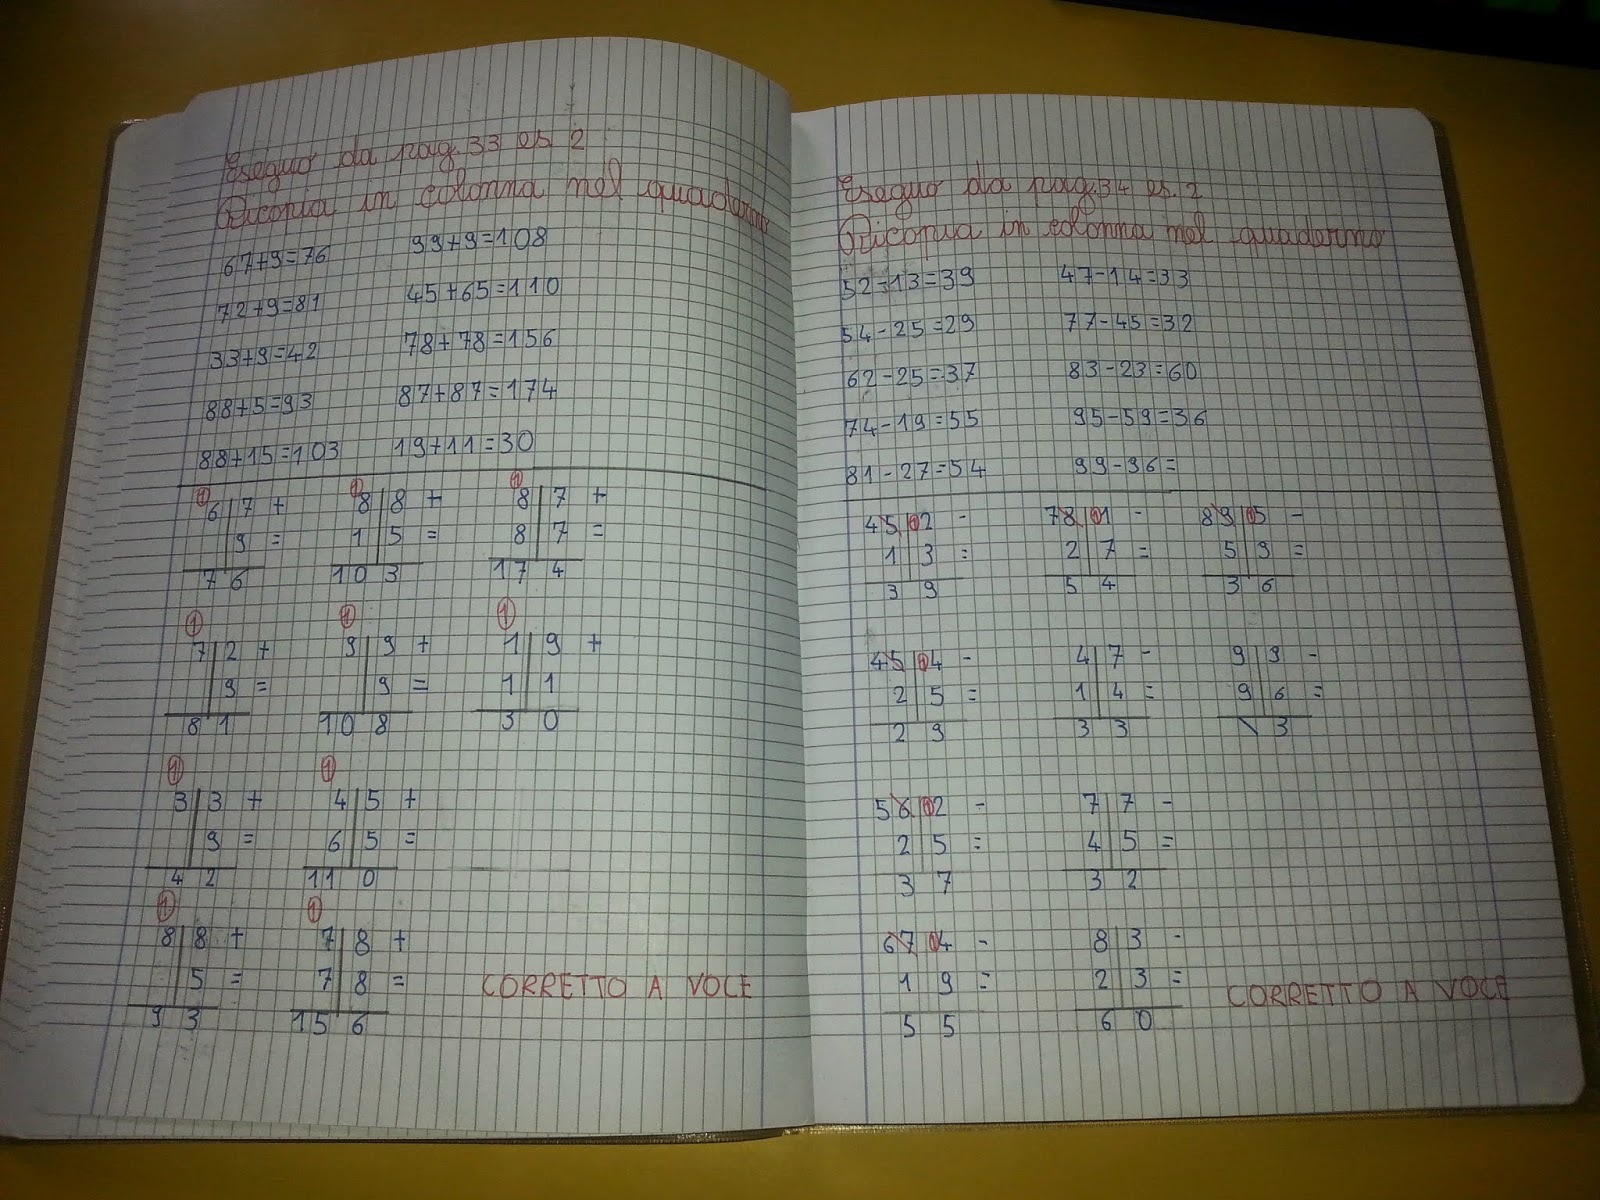 Eseguo da pag. 33 es 2
Ricopia in colonna nel quaderno
67+9=76 99+9=108
72+9=81 45+65=110
33+9=42 78+78=156
88+5=93 87+87=174
88+15=103 19+11=30
1 1 1
6 7 + 8 8 + 8 7 +
9 = 1 5 = 8 7 =
7 6 1 0 3 1 7 4
1 1 1
7 2 + 9 9 + 1 9 +
9 = 9 = 1 1
8 1 1 0 8 3 0
1 1
3 3 + 4 5 +
9 = 6 5 =
4 2 1 1 0
1 1
8 8 + 7 8 +
5 = 7 8 =
9 3 1 5 6
CORRETTO A VOCE
Eseguo da pag. 34 es. 2
Ricopia in colonna nel quaderno
52-13=39 47-14=33
54-25=29 77-45=32
62-25=37 83-23=60
74-19=55 95-59=36
81-27=54 99-96=
4 5 1 2 - 7 8 1 1 - 8 9 1 5 -
1 3 = 2 7 = 5 9 =
3 9 5 4 3 6
4 5 1 4 - 4 7 - 9 9 -
2 5 = 1 4 = 9 6 =
2 9 3 3 \ 3
5 6 1 2 - 7 7 -
2 5 = 4 5 =
3 7 3 2
6 7 1 4 - 8 3 -
1 9 = 2 3 =
5 5 6 0
CORRETTO A VOCE